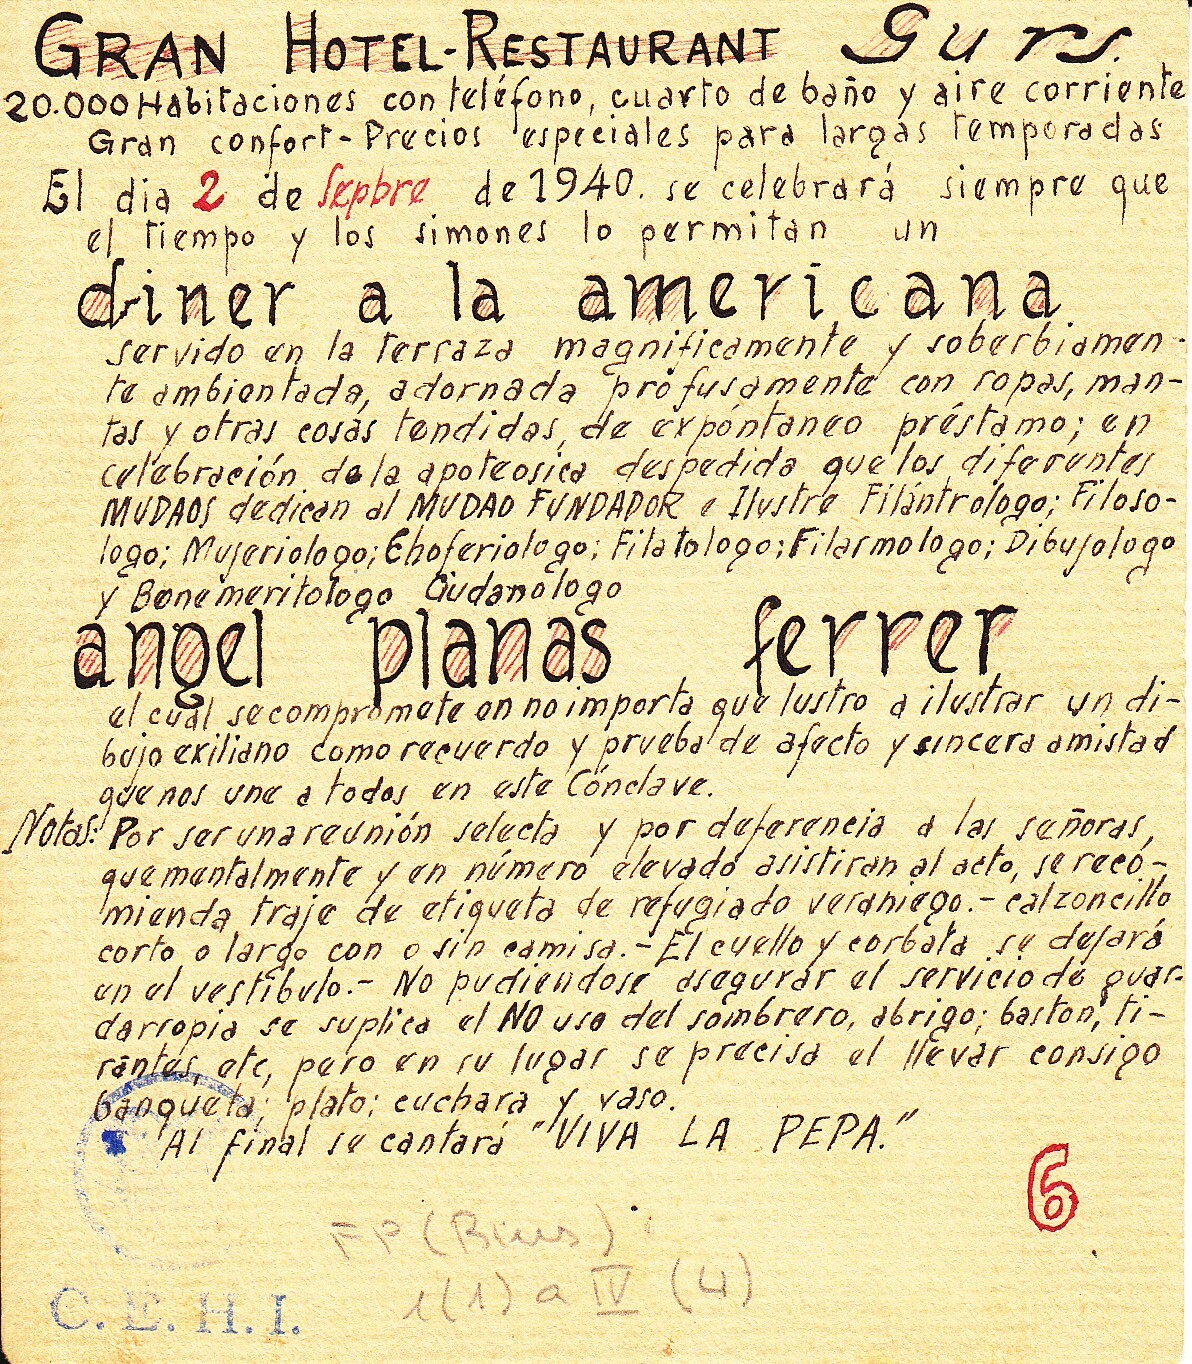 GRAN HOTEL-RESTAURANT Gurs.
20.000 Habitaciones con teléfono, cuarto de baño y aire corriente
Gran confort - Precios especiales para largas temporadas
El dia 2 de Sepbre de 1940. se celebrará siempre que
el tiempo y los simones lo permitan un
diner a la americana
servido en la terraza magnificamente y soberbiamen-
te ambientada, adornada profusamente con ropas, man-
tas y otras cosas tendidas, de expóntaneo préstamo; en
celebración de la apoteosica despedida que los diferentes
MUDAOS dedican al MUDAO FUNDADOR e Ilustre Filántrologo; Filoso-
logo; Mujeriologo; Choferiologo; Filatologo; Filarmologo; Dibujologo
y Benemeritologo Gudanólogo
angel planas ferrer
el cual se compromete en no importa que lustro a ilustrar un di-
bujo exiliano como recuerdo y prueba de afecto y sincera amistad
que nos une a todos en este Cónclave.
Notas: Por ser una reunión selecta y por deferencia a las señoras,
que mentalmente y en número elevado asistiran al acto, se reco-
mienda traje de etiqueta de refugiado veraniego.- calzoncillo
corto o largo con o sin camisa.- El cuello y corbata se dejará
en el vestíbulo.- No pudiendose asegurar el servicio de guar-
darropia se suplica el NO uso del sombrero, abrigo; baston, ti-
rantes, etc, pero en su lugar se precisa el llevar consigo
banqueta; plato; cuchara y vaso.
Al final se cantará "VIVA LA PEPA."
6
FP (Bius)
1(1) a IV (4)
C. E. H. I.